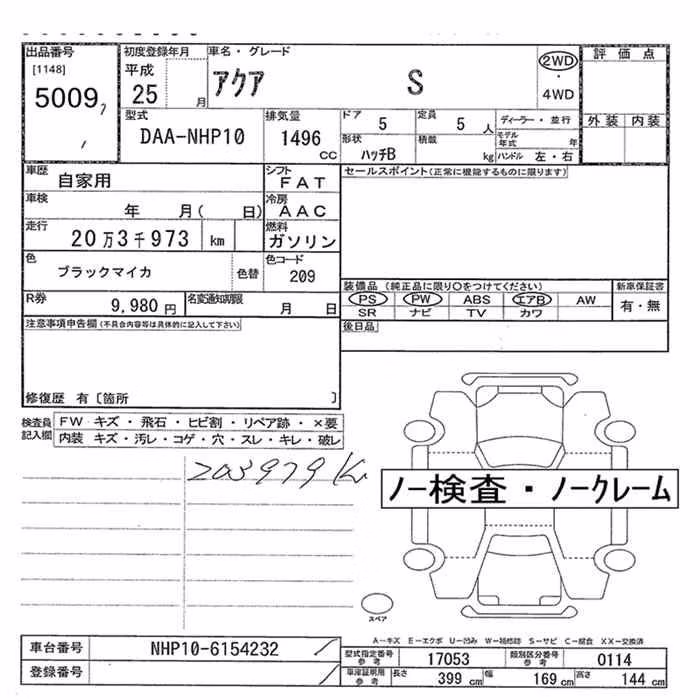 出品番号
[1148]
5009
初度登録年月
平成
25 月
車名・グレード
アクア S
2WD
・
4WD
評価点
外装 内装
型式
DAA-NHP10
排気量
1496
CC
ドア 5
定員 5 人
形状 ハッチB
積載 kg
ディーラー・並行
モデル年式 年
ハンドル 左・右
車歴
自家用
シフト
FAT
車検
年 月( 日)
冷房
AAC
走行
20万3千973 km
燃料
ガソリン
色
ブラックマイカ
色替
色コード
209
R券
9,980 円
名変通知期限
月 日
セールスポイント(正常に機能するものに限ります)
装備品 (純正品に限り○をつけてください)
新車保証書
PS PW ABS エアB AW
SR ナビ TV カワ
有・無
後日品
注意事項申告欄(不具合内容等は具体的に記入して下さい)
修復歴 有〔箇所 〕
検査員記入欄
FW キズ・飛石・ヒビ割・リペア跡・×要
内装 キズ・汚レ・コゲ・穴・スレ・キレ・破レ
203979K
ノー検査・ノークレーム
スペア
A-キズ E-エクボ U-凹み W-補修跡 S-サビ C-腐食 XX-交換済
車台番号 NHP10-6154232
登録番号
型式指定番号 参考 17053
類別区分番号 参考 0114
車庫証明用 参考
長さ 399 cm
幅 169 cm
高さ 144 cm